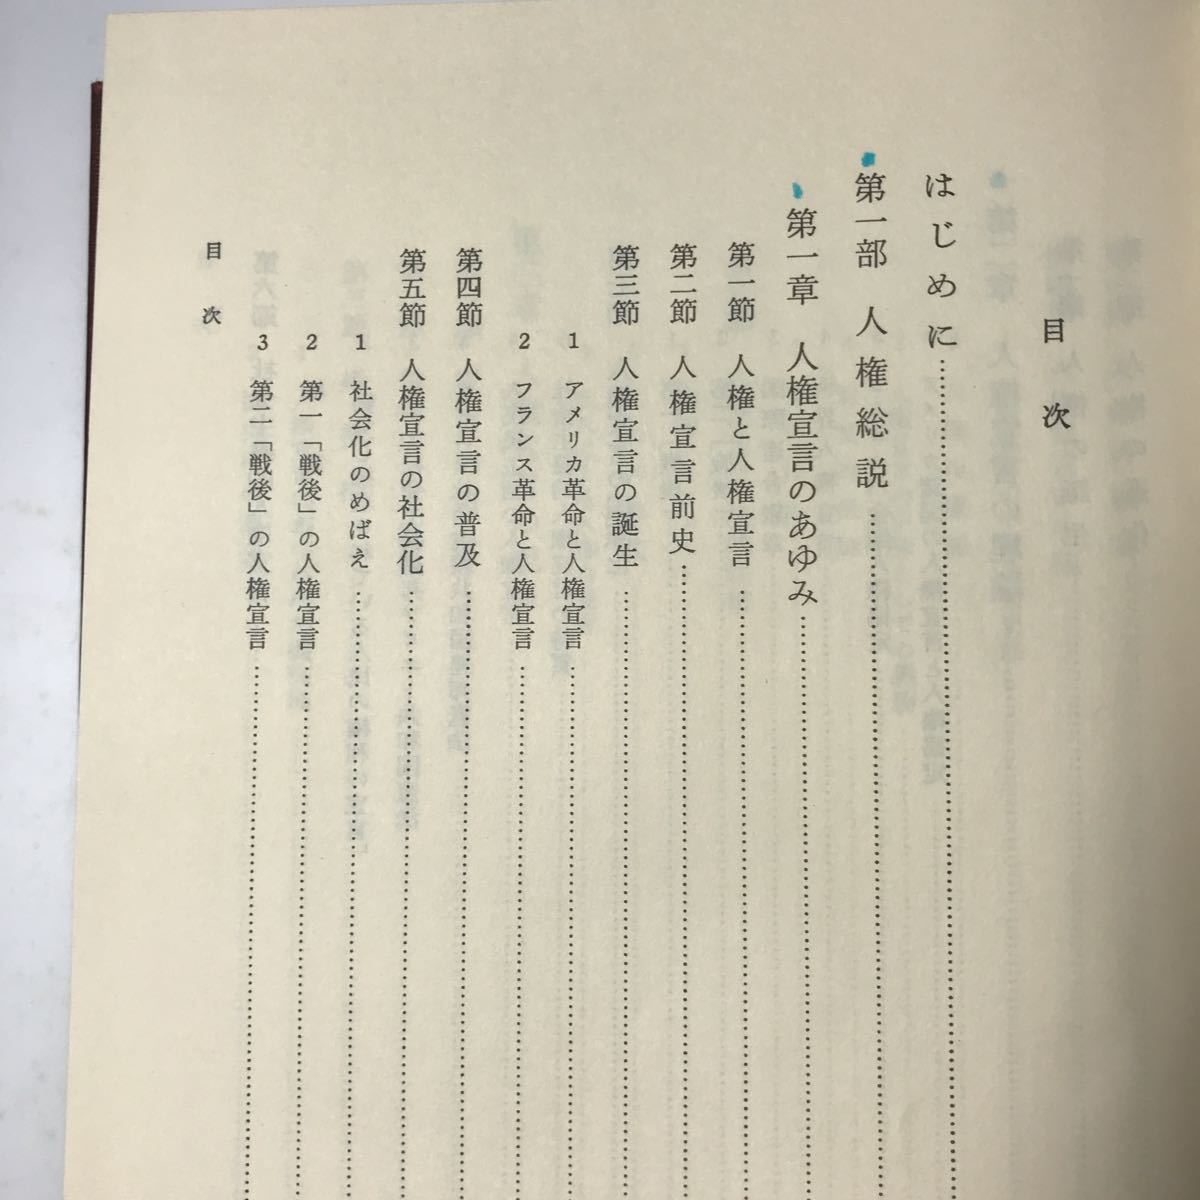 目次
はじめに
第一部 人権総説
第一章 人権宣言のあゆみ
第一節 人権と人権宣言
第二節 人権宣言前史
第三節 人権宣言の誕生
1 アメリカ革命と人権宣言
2 フランス革命と人権宣言
第四節 人権宣言の普及
第五節 人権宣言の社会化
1 社会化のめばえ
2 第一「戦後」の人権宣言
3 第二「戦後」の人権宣言
目次